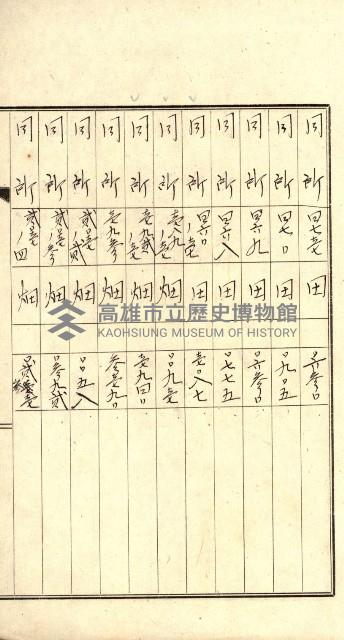 同所 四七壱 田
同所 四七〇 田 〇九〇五
同所 四六九 田
同所 四六八 田 〇七七五
同所 四六〇ノ壱 田 壱〇八七
同所 壱八九ノ壱 畑 〇〇九壱
同所 壱九弐ノ壱 畑 壱九四〇
同所 壱九参 畑 参壱九〇
同所 弐壱壱ノ弐 畑 〇〇五八
同所 弐壱壱ノ参 畑 〇参九弐
同所 弐壱壱ノ四 畑
高雄市立歷史博物館
KAOHSIUNG MUSEUM OF HISTORY